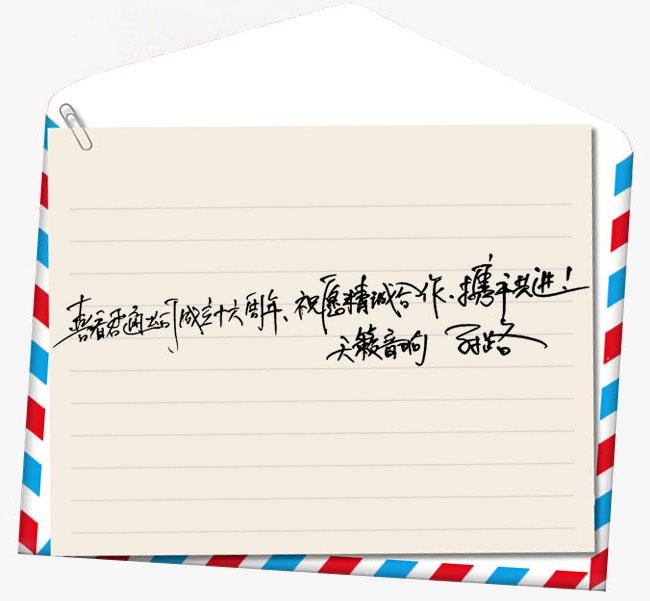 喜看君通公司成立十六周年、祝愿精诚合作、携手共进！
天籁音响